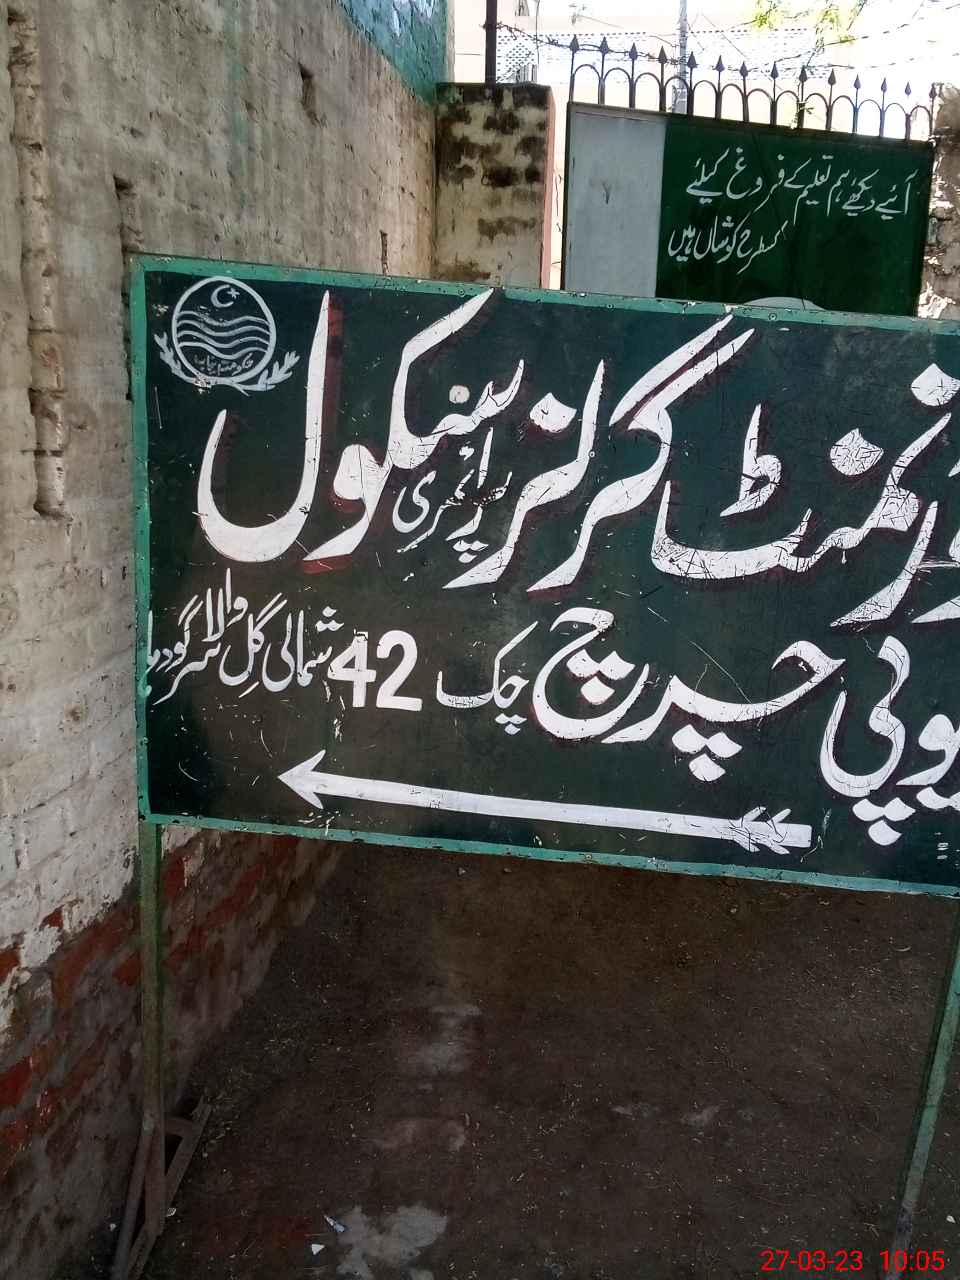 آئیے دیکھئے ہم تعلیم کے فروغ کیلئے
کسطرح کوشاں ہیں
حکومت پنجاب
ورنمنٹ گرلز پرائمری سکول
یوپی چرچ چک 42 شمالی گِل والا سرگودھا
27-03-23 10:05